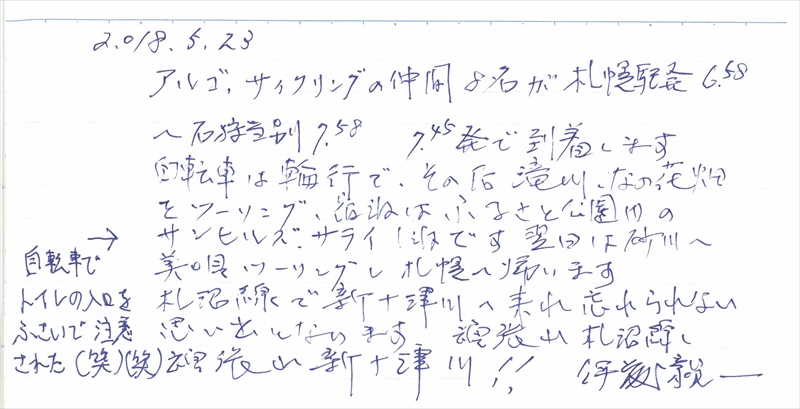 2018.5.23
アルゴ、サイクリングの仲間8名が札幌駅発6.58
〜石狩当別7.58 7.45発で到着します
自転車は輪行で、その后滝川、なの花畑
をツーリング、宿泊はふるさと公園内の
サンヒルズ・サライ1泊です翌日は砂川へ
美唄ツーリングし札幌へ帰います
札沼線で新十津川へ来れ忘れられない
思い出となります 頑張れ札沼線し
頑張れ新十津川!!
自転車で→
トイレの入口を
ふさいで注意
された(笑)(笑)